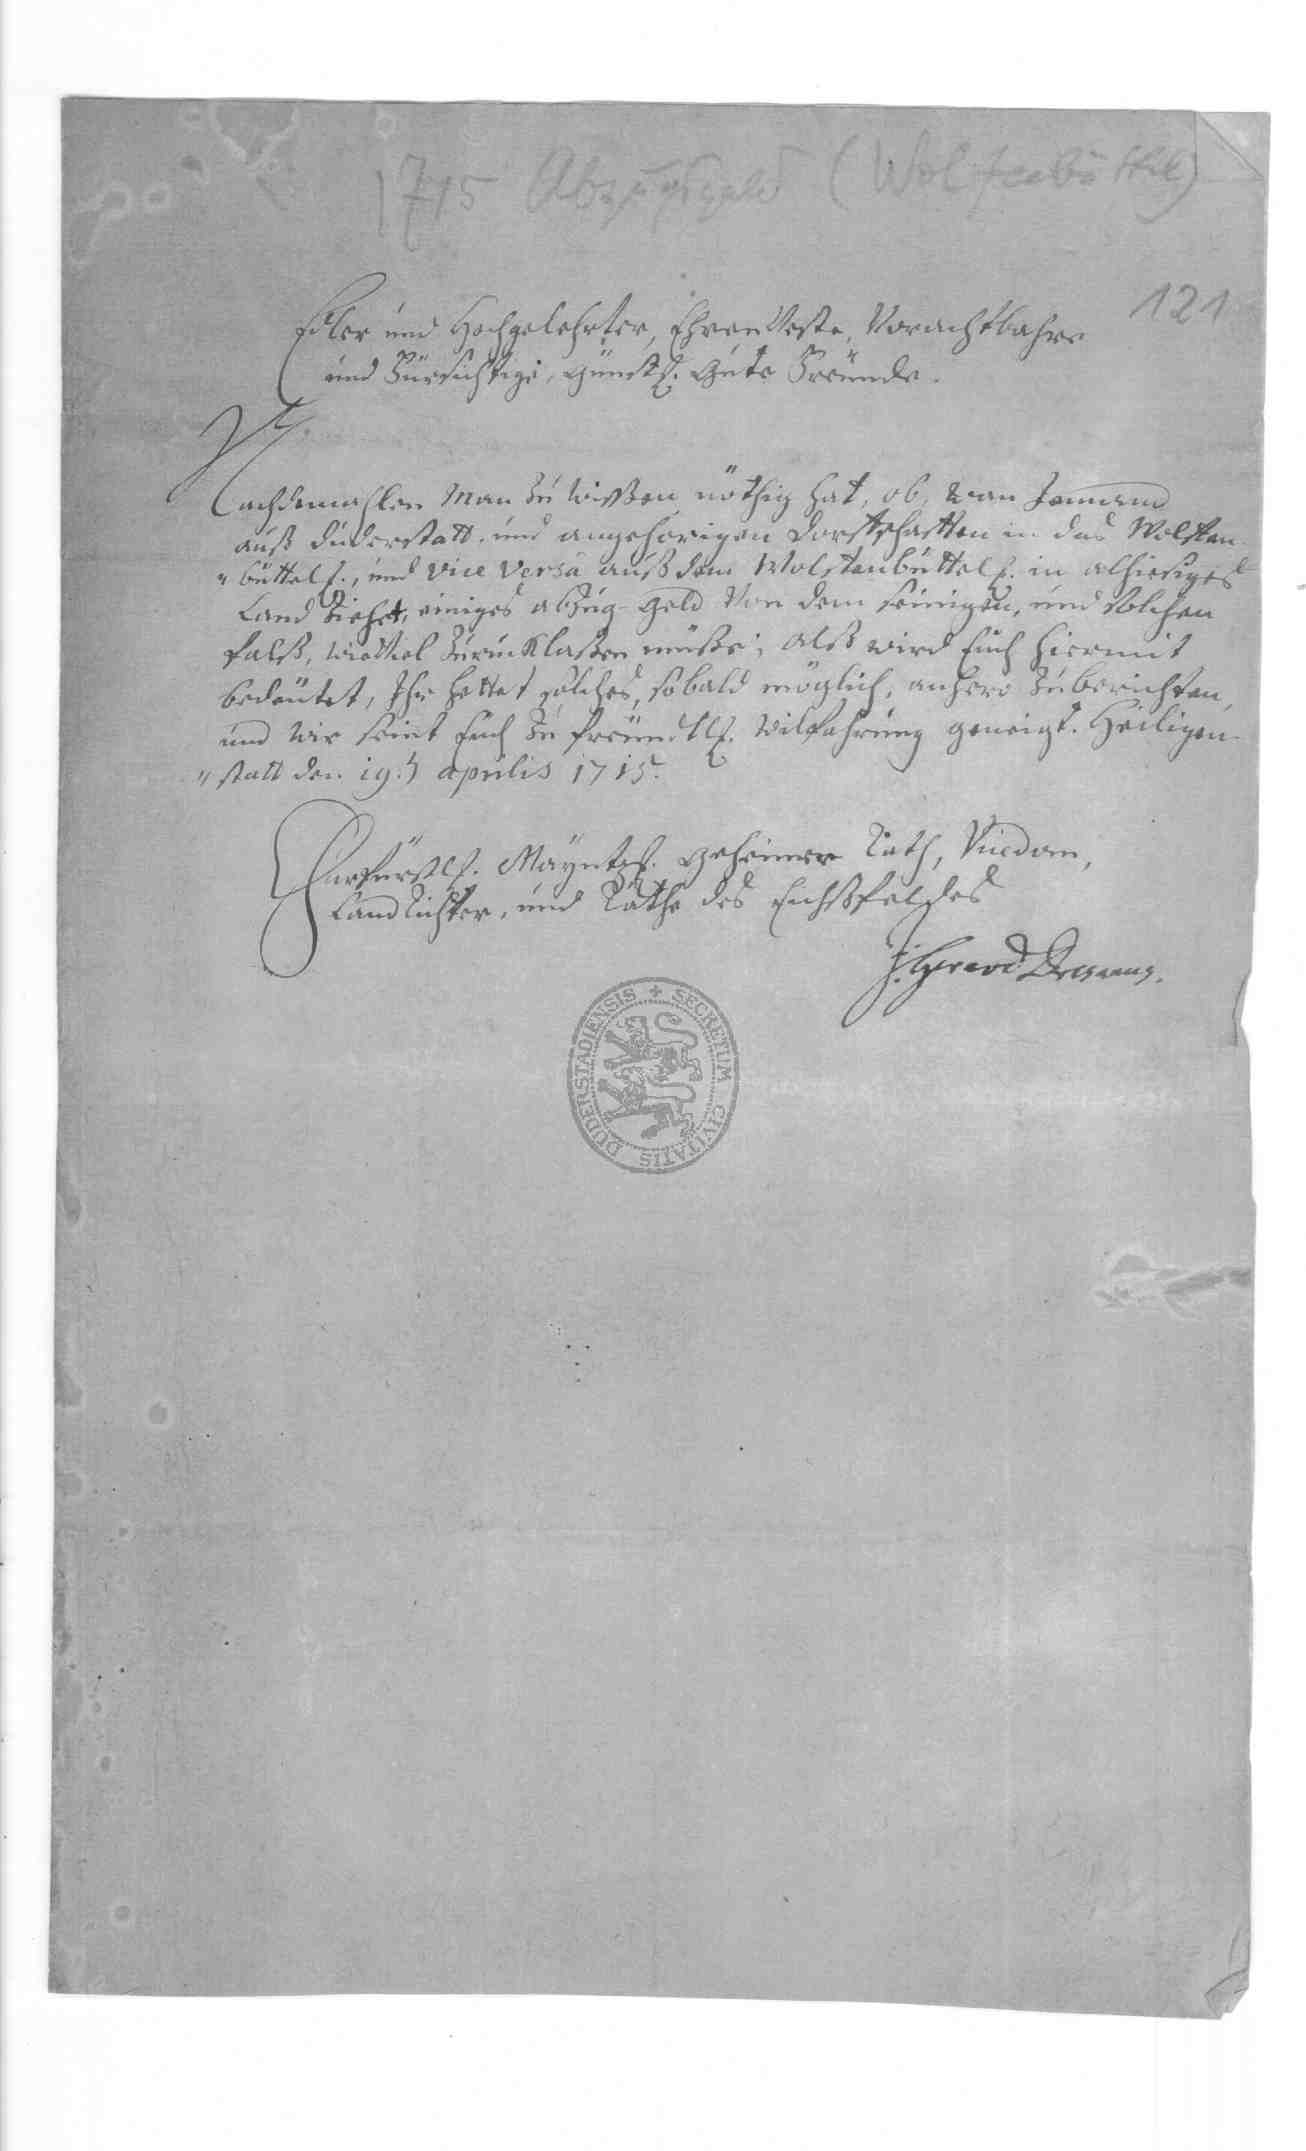 1715 Abzugsgeld (Wolfenbüttel)
121
Edler und Hochgelehrter, EhrenVeste, Vorachtbahre
und Fürsichtige, günstl. gute Freünde.
Nachdemahlen Man Zu wißen nöthig hat, ob, wan Jemmand
auß duderstatt, und angehörigen dorffschafften in das Wolffen-
"büttels., und vice versa auß dem Wolffenbüttels. in alhiesiges
Land Ziehet, einiges abzug-geld von dem seinigen, und solchen
falß, wieviel Zurücklaßen müße; alß wird Euch hiermit
bedeütet, Ihr hettet solches, sobald möglich, anhero Zuberichten,
und wir seint Euch zu freündtl. wilfahrung geneigt. Heiligen-
"statt den 19.ten aprilis 1715.
Churfürstl. Mayntzs. geheimer Rath, Vicedom,
LandRichter, und Räthe des Eichßfeldes
DUDERSTADIENSIS + SECRETUM CIVITATIS